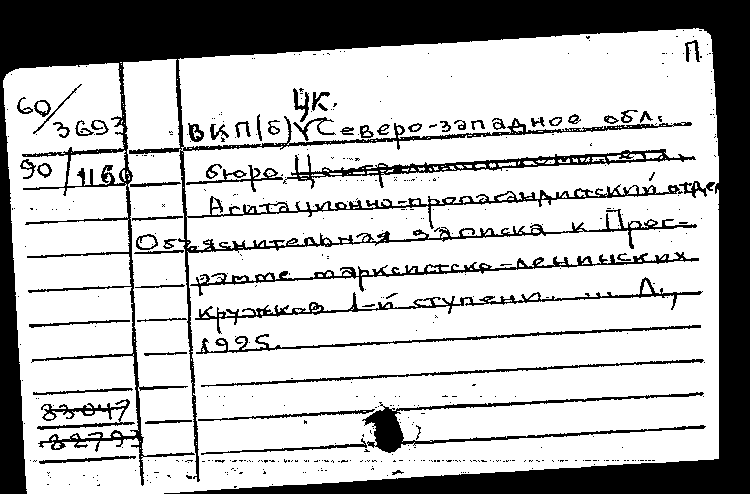 П
60/3693
ЦК.
ВКП(б) Северо-западное обл.
90/1160
бюро Центрального комитета.
Агитационно-пропагандистский отдел
Объяснительная записка к Прог-
рамме марксистско-ленинских
кружков 1-й ступени. ... Л.,
1925.
33047
32793